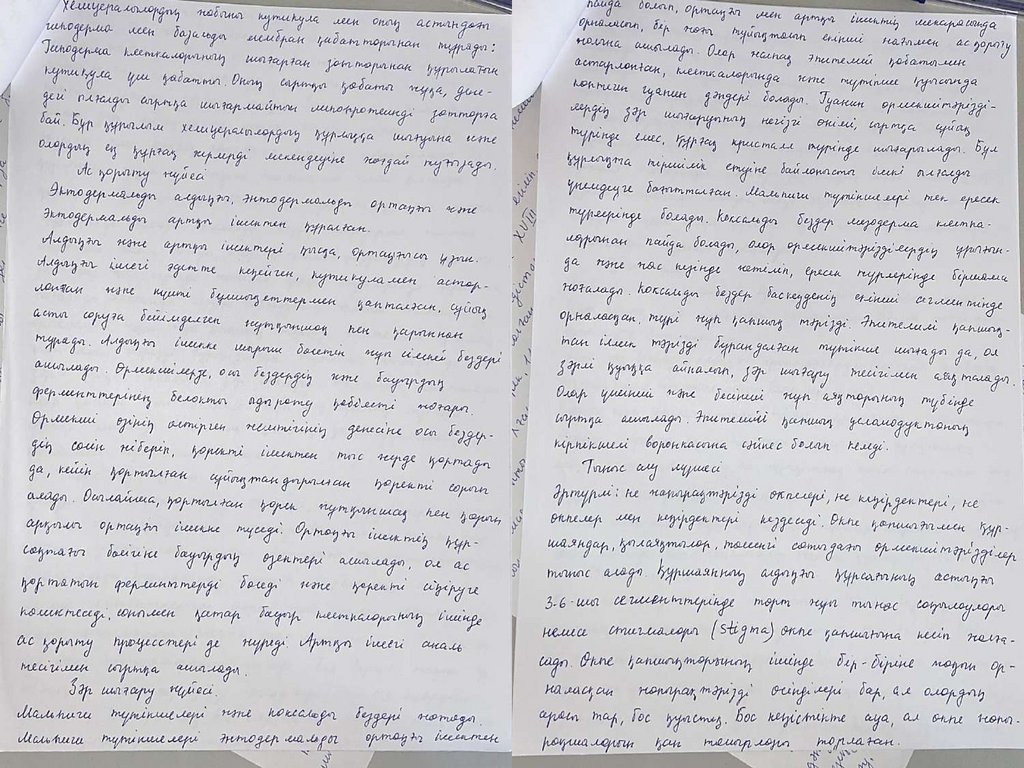 Хелицералылордың жабыны кутикула мен оның астындағы
гиподерма мен базальды мембран қабаттарынан тұрады:
Гиподерма клеткаларының шығарған заттарынан құрылатын
кутикула үш қабатты. Оның сыртқы қабаты жұқа, дене-
дегі ылғалды сыртқа шығармайтын липопротеинді заттарға
бай. Бұл құрылым хелицералылардың құрлыққа шығуына және
олардың ең құрғақ жерлерді мекендеуіне жағдай туғызады.
Ас қорыту жүйесі
Эктодермальды алдыңғы, энтодермальды ортаңғы және
эктодермальды артқы ішектен құралған.
Алдыңғы және артқы ішектері қысқа, ортаңғысы ұзын.
Алдыңғы ішегі әдетте кеңейген, кутикуламен астар-
ланған және күшті бұлшықеттермен қапталған, сұйық
асты соруға бейімделген жұтқыншақ пен қарыннан
тұрады. Алдыңғы ішекке шырыш бөлетін жұп сілекей бездері
ашылады. Өрмекшілерде, осы бездердің және бауырдың
ферменттерінің белокты ыдырату қабілеті жоғары.
Өрмекші өзінің өлтірген жемтігінің денесіне осы бездер-
дің сөлін жіберіп, қоректі ішектен тыс жерде қортады
да, кейін қортылған сұйықтандырылған қоректі сорып
алады. Осылайша, қортылған қорек жұтқыншақ пен қарын
арқылы ортаңғы ішекке түседі. Ортаңғы ішектің құр-
сақтағы бөлігіне бауырдың өзектері ашылады, ол ас
қортатын ферменттерді бөледі және қоректі сіңіруге
көмектеседі, сонымен қатар бауыр клеткаларының ішінде
ас қорыту процесстері де жүреді. Артқы ішегі аналь
тесігімен сыртқа ашылады.
Зәр шығару жүйесі.
Мальпиги түтікшелері және коксалды бездері жатады.
Мальпиги түтікшелері энтодермальды ортаңғы ішектен
пайда болып, ортаңғы мен артқы ішектің шекарасында
орналасып, бір жағы тұйықталып екінші жағымен ас қорыту
жолына ашылады. Олар жалпақ эпителий қабатымен
астарланған, клеткаларында және түтікше қуысында
көптеген гуанин дәндері болады. Гуанин өрмекшітәрізді-
лердің зәр шығаруының негізгі өнімі, сыртқа сұйық
түрінде емес, құрғақ кристалл түрінде шығарылады. Бұл
құрлықта тіршілік етуіне байланысты білекі ылғалды
үнемдеуге бағытталған. Мальпиги түтікшелері тек ересек
түрлерінде болады. Коксальды бездер мезодерма клетка-
ларынан пайда болады, олар өрмекшітәрізділердің ұрығын-
да және жас кезінде жетіліп, ересек түрлерінде біртіндеп
жоғалады. Коксальды бездер баскөкіректің екінші сегментінде
орналасқан, түрі жұп қапшық тәрізді. Эпителилі қапшық-
тан ілмек тәрізді бұрандалған түтікше шығады да, ол
зәрлі қуыққа айналып, зәр шығару тесігімен аяқталады.
Олар үшінші және бесінші жұп аяқтарының түбінде
сыртқа ашылады. Эпителийлі қапшық целомодуктоның
кірпікшелі воронкасына сәйкес болып келеді.
Тыныс алу мүшесі
Әртүрлі: не жапырақтәрізді өкпелері, не кеңірдектері, не
өкпелер мен кеңірдектері кездеседі. Өкпе қапшығымен құр-
шаяндар, қылаяқтылар, төменгі сатыдағы өрмекшітәрізділер
тыныс алады. Құршаянның алдыңғы құрсағының астыңғы
3-6-шы сегменттерінде төрт жұп тыныс саңылаулары
немесе стигмалары (stigma) өкпе қапшығына келіп жалға-
сады. Өкпе қапшықтарының ішінде бір-біріне жақын ор-
наласқан жапырақтәрізді өсінділері бар, ал олардың
арасы тар, бос қуыстық. Бос кеңістікте ауа, ал өкпе жапы-
рақшаларын қан тамырлары торлаған.